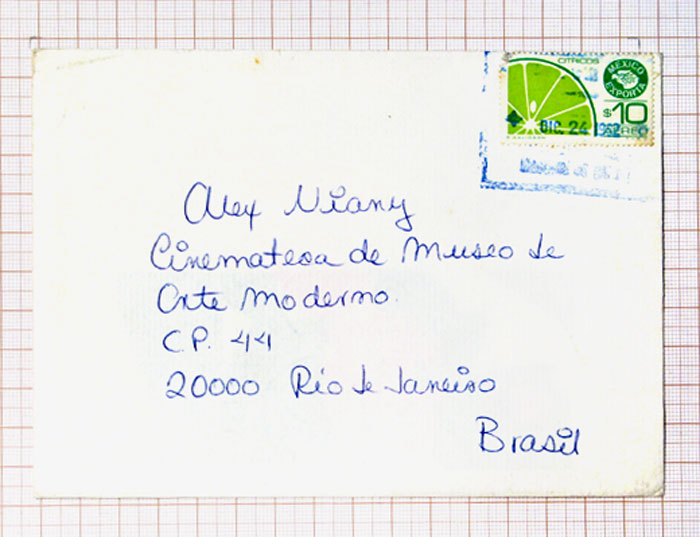 CITRICOS
MEXICO
EXPORTA
$10
AEREO
DIC. 24 1982
Alex Viany
Cinemateca de Museo de
Arte Moderno.
C.P. 44
20000 Rio de Janeiro
Brasil